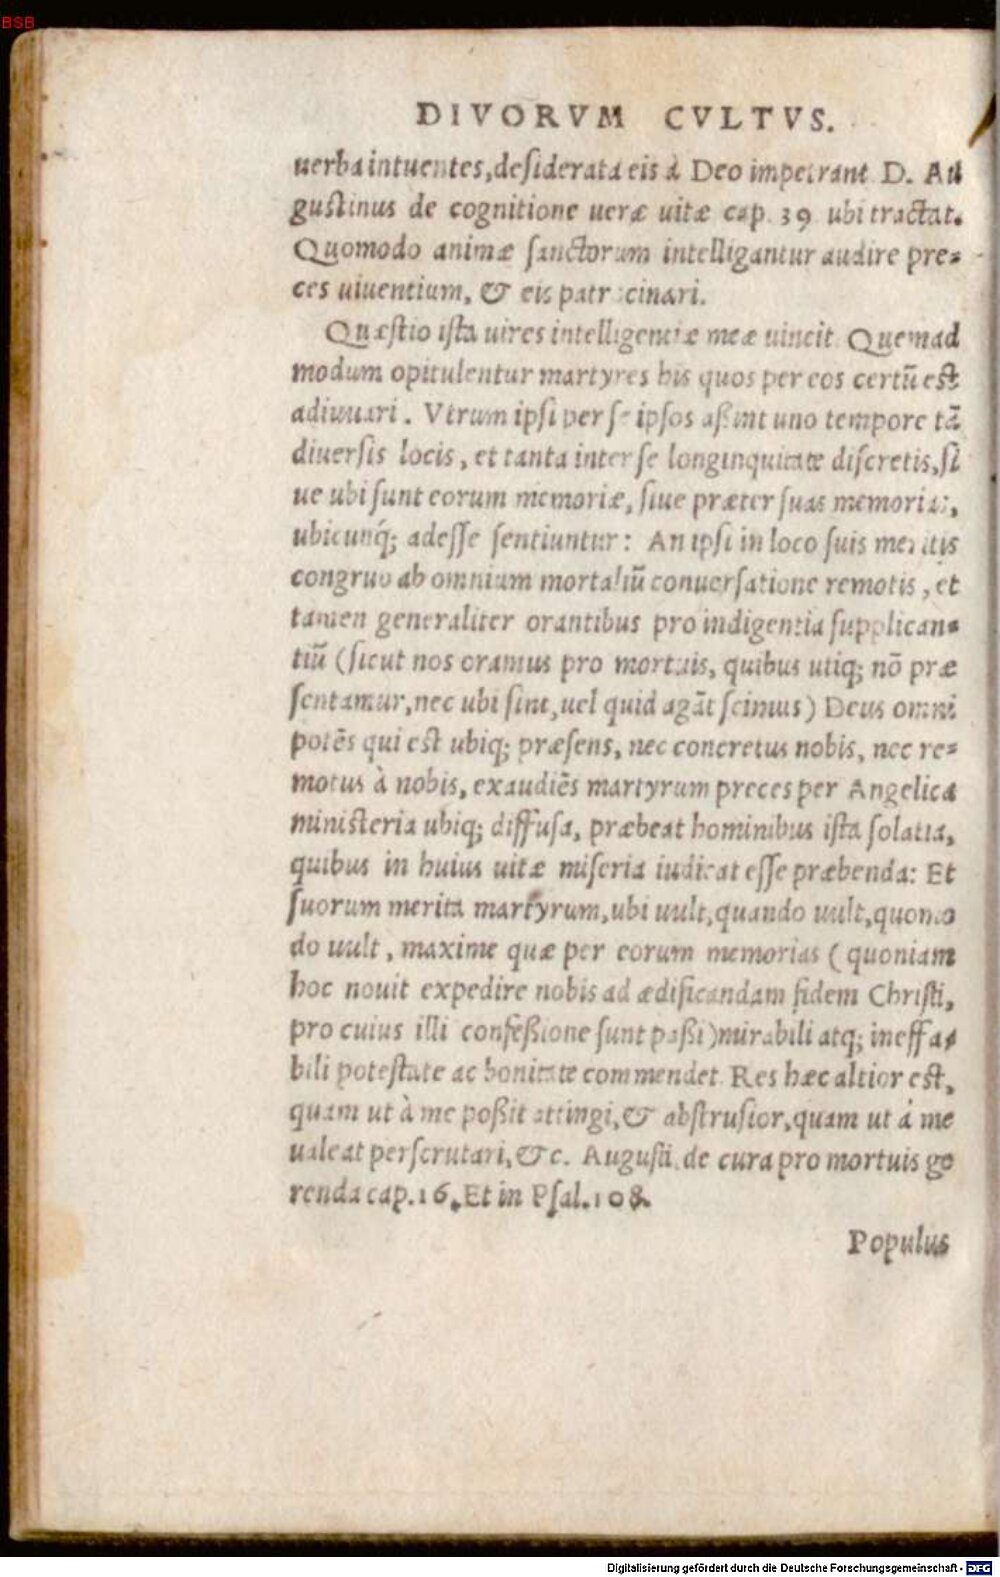 BSB
DIVORVM CVLTVS.
uerba intuentes, desiderata eis à Deo impetrant D. Au
gustinus de cognitione ueræ uitæ cap. 39 ubi tractat.
Quomodo animæ sanctorum intelligantur audire pre=
ces uiuentium, & eis patrocinari.
Quæstio ista uires intelligentiæ meæ uincit. Quemad
modum opitulentur martyres his quos per eos certũ est
adiuuari. Vtrum ipsi per se ipsos aßint uno tempore tã
diuersis locis, et tanta inter se longinquitate discretis, si
ue ubi sunt eorum memoriæ, siue præter suas memorias,
ubicunq́; adesse sentiuntur: An ipsi in loco suis meritis
congruo ab omnium mortaliũ conuersatione remotis, et
tamen generaliter orantibus pro indigentia supplican=
tiũ (sicut nos oramus pro mortuis, quibus utiq; nõ præ
sentamur, nec ubi sint, uel quid agãt scimus) Deus omni
potẽs qui est ubiq; præsens, nec concretus nobis, nec re=
motus à nobis, exaudiẽs martyrum preces per Angelica
ministeria ubiq; diffusa, præbeat hominibus ista solatia,
quibus in huius uitæ miseria iudicat esse præbenda: Et
suorum merita martyrum, ubi uult, quando uult, quomo
do uult, maxime quæ per eorum memorias (quoniam
hoc nouit expedire nobis ad ædificandam fidem Christi,
pro cuius illi confeßione sunt paßi) mirabili atq; ineffa=
bili potestate ac bonitate commendet. Res hæc altior est,
quam ut à me poßit attingi, & abstrusior, quam ut à me
ualeat perscrutari, &c. Augusti. de cura pro mortuis ge
renda cap. 16. Et in Psal. 108.
Populus
Digitalisierung gefördert durch die Deutsche Forschungsgemeinschaft - DFG